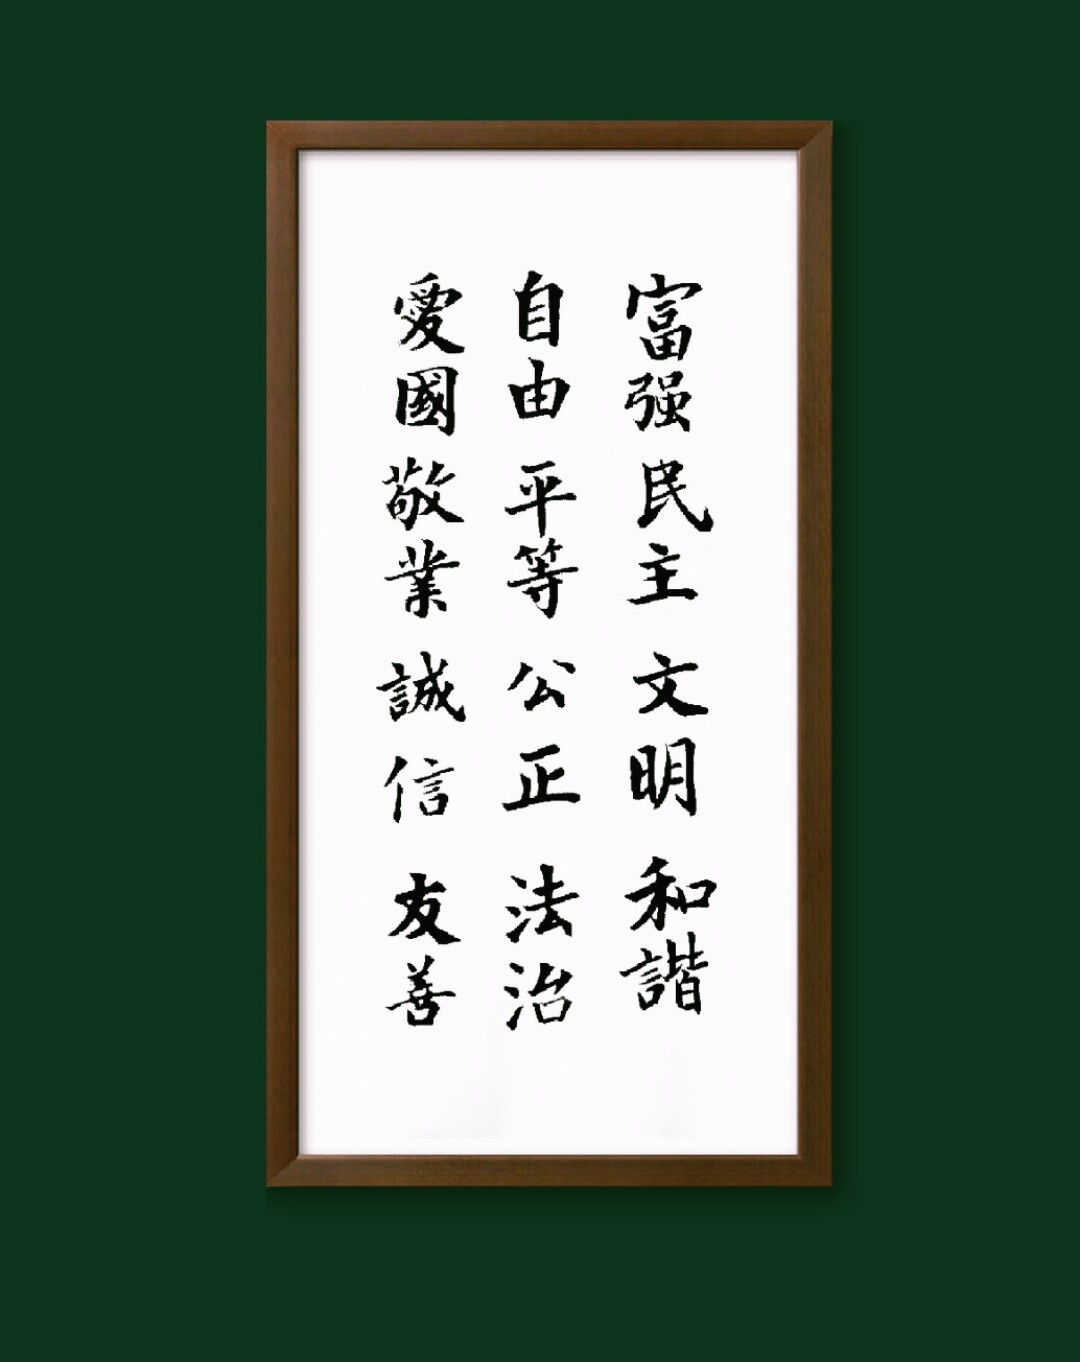 富强民主文明和諧
自由平等公正法治
愛國敬業誠信友善